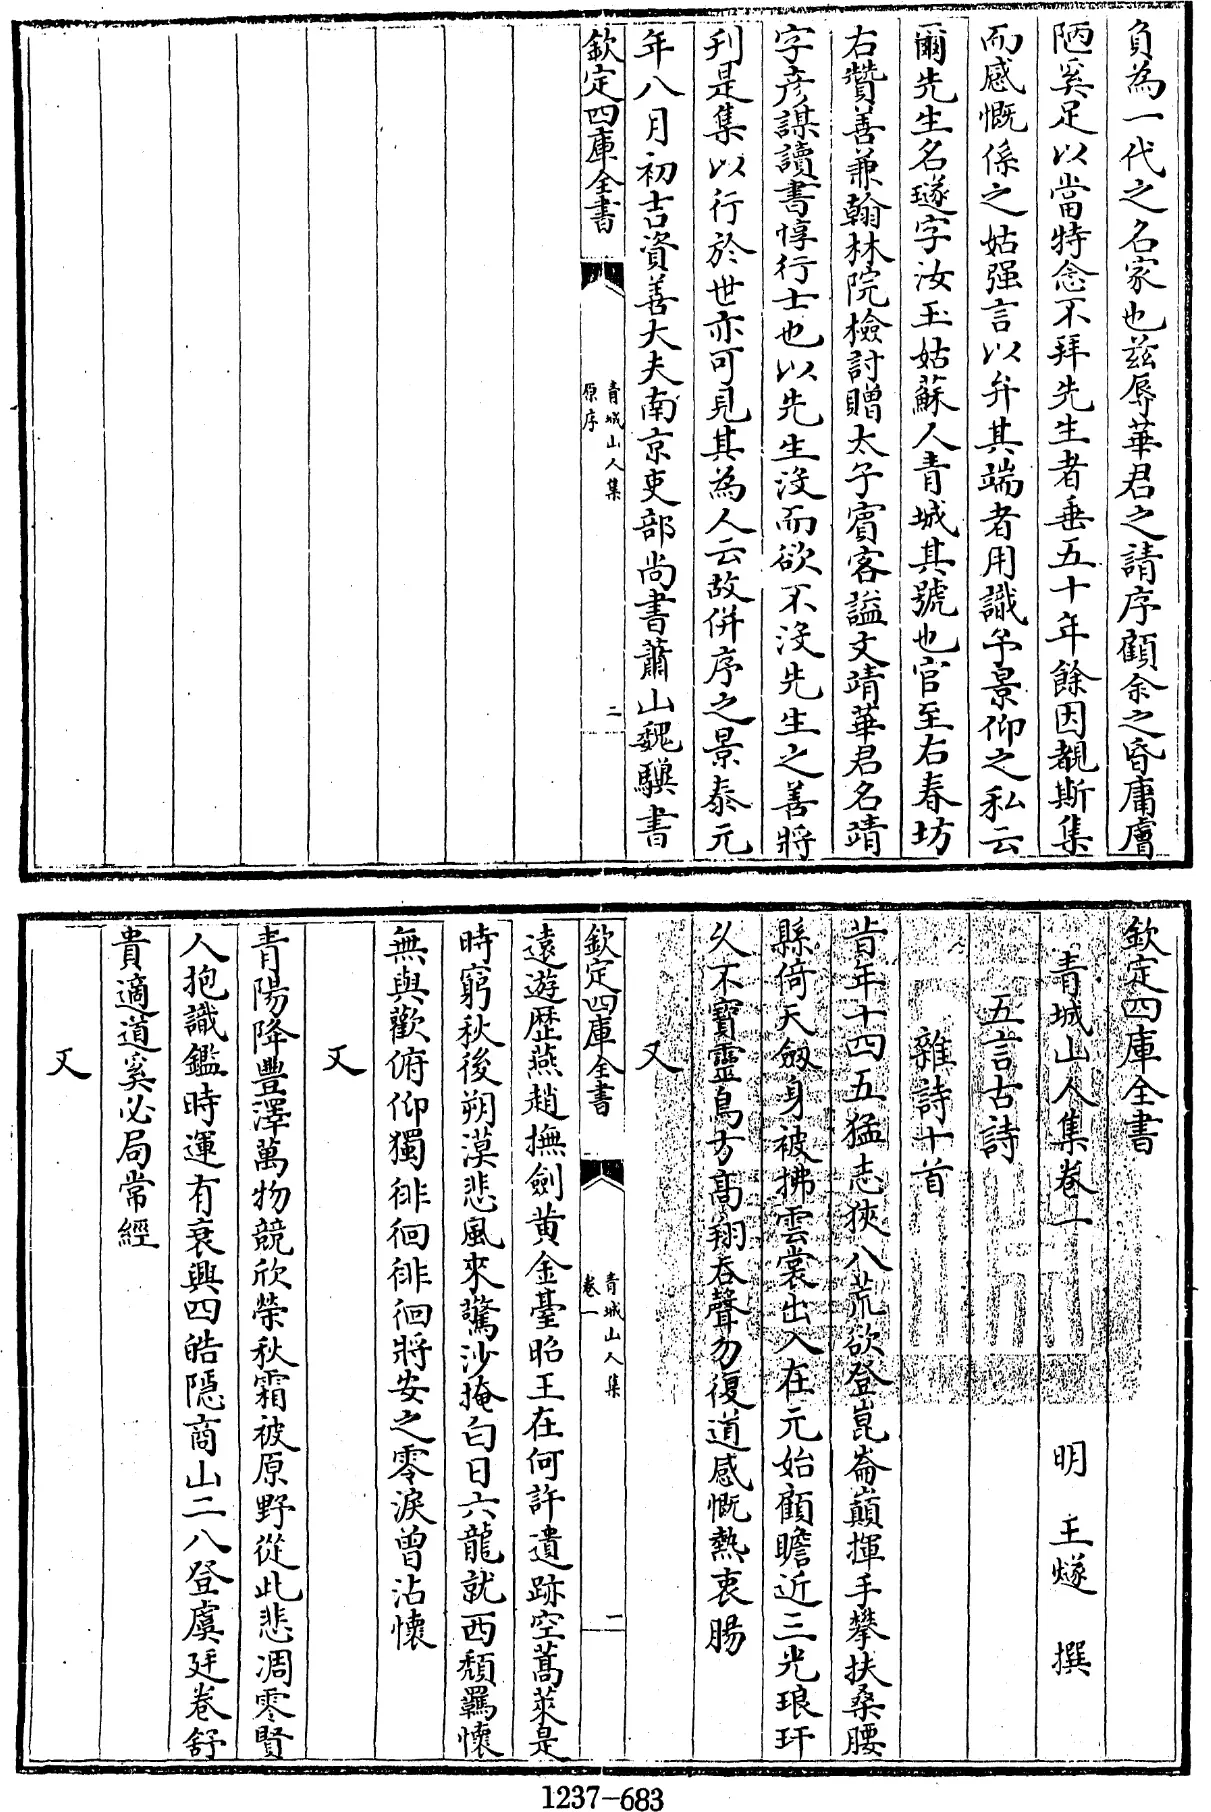 負為一代之名家也兹辱華君之請序顧余之昏庸膚
陋奚足以當特念不拜先生者垂五十年餘因覩斯集
而感慨係之姑强言以弁其端者用識予景仰之私云
爾先生名璲字汝玉姑蘇人青城其號也官至右春坊
右贊善兼翰林院檢討贈太子賓客諡文靖華君名靖
字彦謀讀書惇行士也以先生沒而欲不沒先生之善將
刋是集以行於世亦可見其為人云故併序之景泰元
年八月初吉資善大夫南京吏部尚書蕭山魏驥書
欽定四庫全書
青城山人集
原序
二
欽定四庫全書
青城山人集卷一
明 王燧 撰
五言古詩
雜詩十首
昔年十四五猛志狹八荒欲登崑崙巔揮手攀扶桑腰
縣倚天劔身被拂雲裳出入在元始顧瞻近三光琅玕
久不寶靈鳥方高翔吞聲勿復道感慨熱衷腸
又
欽定四庫全書
青城山人集
卷一
一
遠遊歴燕趙撫劍黄金臺昭王在何許遺跡空蒿萊是
時窮秋後朔漠悲風來驚沙掩白日六龍就西頽羈懷
無與歡俯仰獨徘徊徘徊將安之零淚曾沾懷
又
青陽降豐澤萬物競欣榮秋霜被原野從此悲凋零賢
人抱識鑑時運有衰興四皓隱商山二八登虞廷卷舒
貴適道奚必局常經
又
1237—683